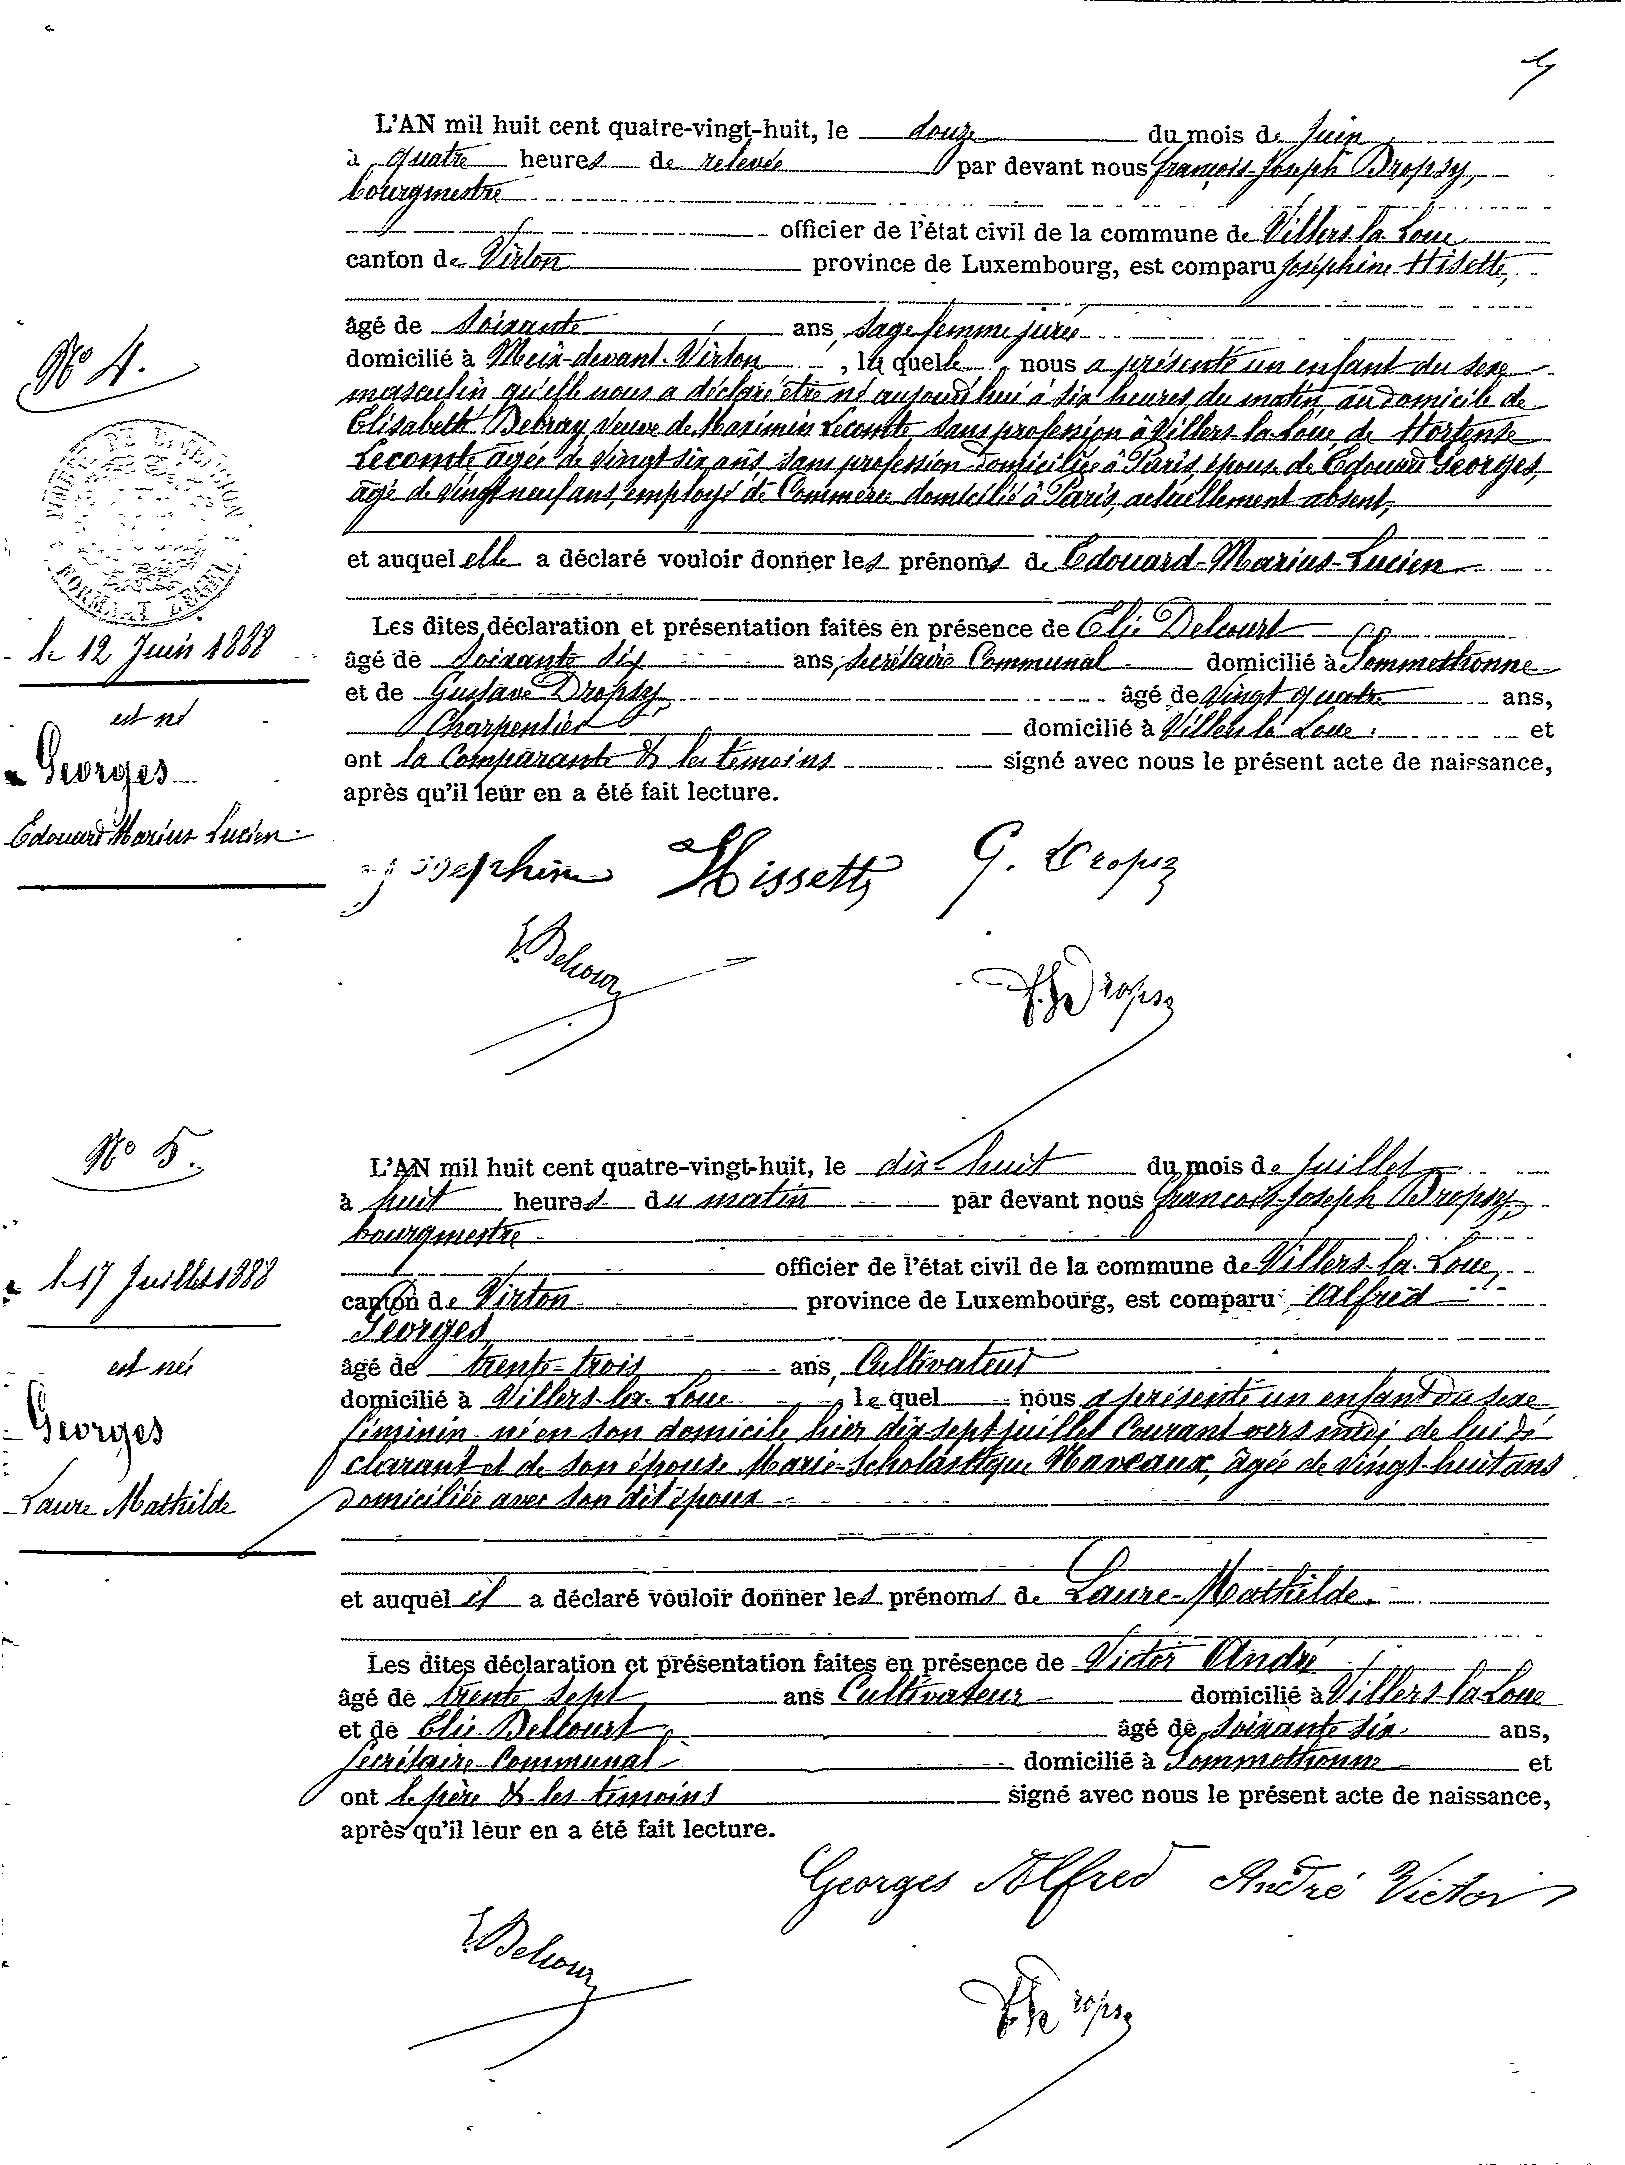 L'AN mil huit cent quatre-vingt-huit, le douze du mois de Juin
à quatre heures de relevée par devant nous françois-Joseph Dropsy,
bourgmestre
officier de l'état civil de la commune de Villers la Loue
canton de Virton province de Luxembourg, est comparu Joséphine Hisette,
âgé de Soixante ans, Sage femme jurée
N° 4.
domicilié à Meix-devant-Virton, la quelle nous a présenté un enfant du sexe
masculin qu'elle nous a déclaré être né aujourd'hui à six heures du matin, au domicile de
Elisabeth Debray, Veuve de Maximin Lecomte, Sans profession à Villers la Loue de Hortense
Lecomte, âgée de vingt six ans, sans profession domiciliée à Paris, épouse de Edouard Georges,
âgé de vingt neuf ans, employé de Commerce domicilié à Paris, actuellement absent,
et auquel elle a déclaré vouloir donner les prénoms de Edouard-Marius-Lucien
Les dites déclaration et présentation faites en présence de Elie Delcourt
le 12 Juin 1888
âgé de Soixante Six ans, Secrétaire Communal domicilié à Sommethonne
et de Gustave Dropsy, âgé de Vingt quatre ans,
est né
Charpentier domicilié à Villers la Loue. et
Georges
ont la Comparante & les témoins signé avec nous le présent acte de naissance,
après qu'il leur en a été fait lecture.
Edouard Marius Lucien
Josephine Hissette G. Dropsy
E. Delcour
F. J. Dropsy
N° 5.
L'AN mil huit cent quatre-vingt-huit, le dix-huit du mois de Juillet
à huit heures du matin par devant nous francois-Joseph Dropsy,
bourgmestre
officier de l'état civil de la commune de Villers-la-Loue,
le 17 Juillet 1888
canton de Virton province de Luxembourg, est comparu Alfred
Georges,
est née
âgé de trente-trois ans, Cultivateur
domicilié à Villers-la-Loue, le quel nous a présenté un enfant du sexe
Georges
féminin né en son domicile hier dix sept juillet Courant vers midi de lui dé
clarant et de son épouse Marie-Scholastique Naveaux, âgée de vingt-huit ans
Laure Mathilde
domiciliée avec son dit époux
et auquel il a déclaré vouloir donner les prénoms de Laure-Mathilde.
Les dites déclaration et présentation faites en présence de Victor André
âgé de trente sept ans Cultivateur domicilié à Villers-la-Loue
et de Elie Delcourt, âgé de Soixante six ans,
Secrétaire Communal domicilié à Sommethonne et
ont le père & les témoins signé avec nous le présent acte de naissance,
après qu'il leur en a été fait lecture.
Georges Alfred André Victor
E. Delcour
F. J. Dropsy